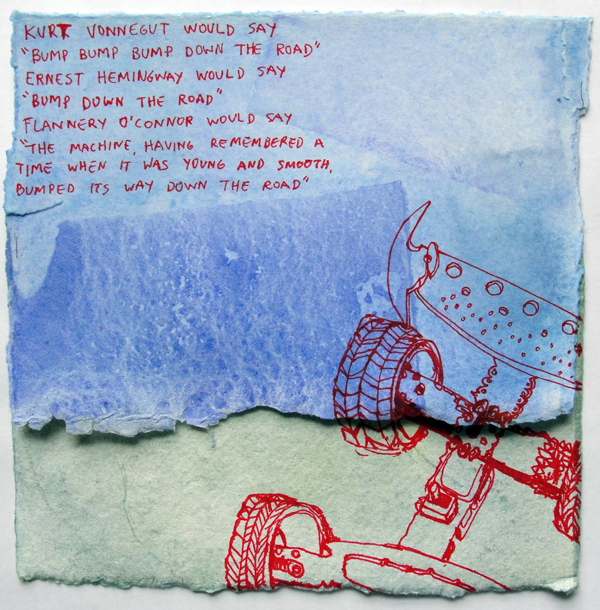 KURT VONNEGUT WOULD SAY
"BUMP BUMP BUMP DOWN THE ROAD"
ERNEST HEMINGWAY WOULD SAY
"BUMP DOWN THE ROAD"
FLANNERY O'CONNOR WOULD SAY
"THE MACHINE, HAVING REMEMBERED A
TIME WHEN IT WAS YOUNG AND SMOOTH,
BUMPED ITS WAY DOWN THE ROAD"